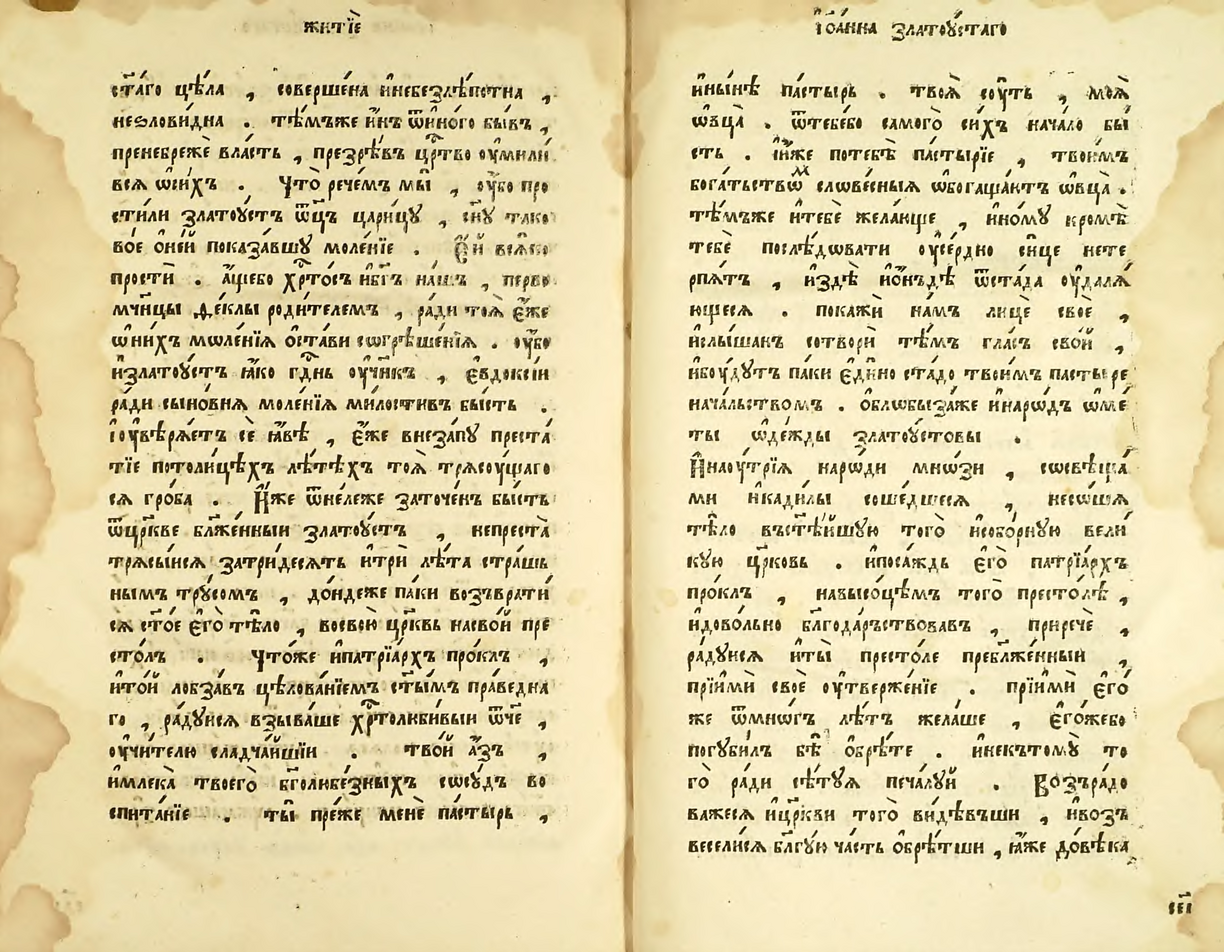 житїѐ
ст҃а́го цѣ́ла , соверше́на и҆небезлѣ́потна ,
неѕлови́дна . тѣ́мъже и҆́нъ ѿи҆но́го бы́въ ,
пренебрежѐ вла́сть , презрѣ́въ црⷭ҇тво оу҆мили́
вся̀ ѡ҆си́хъ . Что̀ рече́мъ мы̀ , оу҆́бо про
сти́ли златоу́стъ ѿц҃ъ цари́цу , сн҃у тако
во́е ѡ҆не́й показа́вшу моле́нїе . Е҆́й вся́ко
простѝ . а҆́щебо хрⷭ҇то́съ и҆бг҃ъ на́шъ , перво
мч҃нцы ѳе́клы роди́телемъ , ра́ди тоя̀ е҆́же
ѡ҆ни́хъ мѡле́нїя ѡ҆ста́ви сѡгрѣше́нїя . оу҆́бо
и҆златоу́стъ ꙗ҆́ко гдⷭ҇нь оу҆чн҃къ , е҆vдоксі́и
ра́ди сы́новня моле́нїя ми́лостивъ бы́сть .
і҆оу҆вѣря́етъ сѐ ꙗ҆́вѣ , е҆́же внеза́пу преста́
тїе потоли́цѣхъ лѣ́тѣхъ тоя̀ трясоу́щаго
ся гро́ба . И҆́же ѿне́леже заточе́нъ бы́сть
ѿцр҃кве бл҃же́нныи златоу́стъ , непреста̀
трясы́ися затри́десять и҆трѝ лѣ́та стра́шь
нымъ тру́сомъ , до́ндеже па́ки возъврати́
ся ст҃о́е е҆гѐ тѣ́ло , восвою̀ цр҃квь насво́й пре
сто́лъ . Что́же и҆патрїа́рхъ про́клъ ,
и҆то́й лобза́въ цѣлова́нїемъ ст҃ы́мъ пра́ведна
го , ра́дуися взыва́ше хрⷭ҇толюби́выи ѿч҃е ,
оу҆чи́телю сладча́йшїи . тво́й а҆́зъ ,
и҆млека̀ твоего̀ бг҃олюбе́зныхъ сѡсу́дъ во
спита́нїе . ты̀ пре́же менѐ па́стырь ,
і҆ѡа́нна златоу́стаго
и҆ны́нѣ па́стырь . твоя̀ су́ть , моя̀
ѡ҆вца̀ . ѿтебебо самого̀ си́хъ нача́ло бы́
сть . и҆́же потебѣ̀ па́стырїе , твои́мъ
бога́тьствѡⷨ слове́сныя ѡ҆богаща́ютъ ѡ҆вца̀ .
тѣ́мъже и҆тебѐ жела́юще , и҆но́му кромѣ̀
тебѐ послѣ́довати оу҆се́рдно си́це нете
рпя́тъ , и҆здѣ̀ и҆ѡ҆́нъдѣ ѿста́да оу҆даля́
ющеся . покажѝ на́мъ лицѐ своѐ ,
и҆слы́шанъ сотворѝ тѣ́мъ гла́съ сво́й ,
и҆бу́дутъ па́ки е҆ди́но ста́до твои́мъ пастыре
нача́льствомъ . ѡ҆блобыза́же и҆наро́дъ ѡ҆ме
ты ѡ҆де́жды златоу́стовы .
И҆наоу́трїя наро́ди мно́зи , сосвѣща́
ми и҆кади́лы соше́дшеся , несо́ша
тѣ́ло въст҃ѣ́йшую того̀ и҆собо́рную вели́
кую цр҃ковь . и҆поса́ждь е҆гѐ патрїа́рхъ
про́клъ , навысо́цѣмъ того̀ престо́лѣ ,
и҆дово́льно бл҃года́рьствовавъ , приречѐ ,
ра́дуися и҆ты̀ престо́ле пребл҃же́нный ,
прїимѝ своѐ оу҆твержє́нїе . прїимѝ е҆го́
же ѿмно́гъ лѣ́тъ жела́ше , е҆го́жебо
погуби́лъ бѣ̀ ѡ҆брѣ́те . и҆нектому̀ то
го̀ ра́ди сѣ́туя печа́луй . Возъра́до
важеся и҆цр҃кви того̀ ви́дѣвъши , и҆возъ
весели́ся бл҃гу́ю ча́сть ѡ҆брѣ́тши , ꙗ҆́же до́вѣка
сєі҃